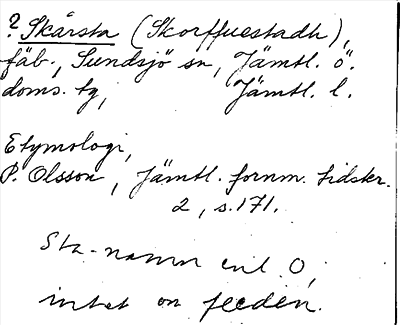 ? Skårsta (Skorffuestadh),
fäb., Sundsjö sn, Jämtl. ö.
doms. tg, Jämtl. l.
Etymologi,
P. Olsson, Jämtl. fornm. tidskr.
2, s. 171.
Sta-namn enl. O;
intet om leden.